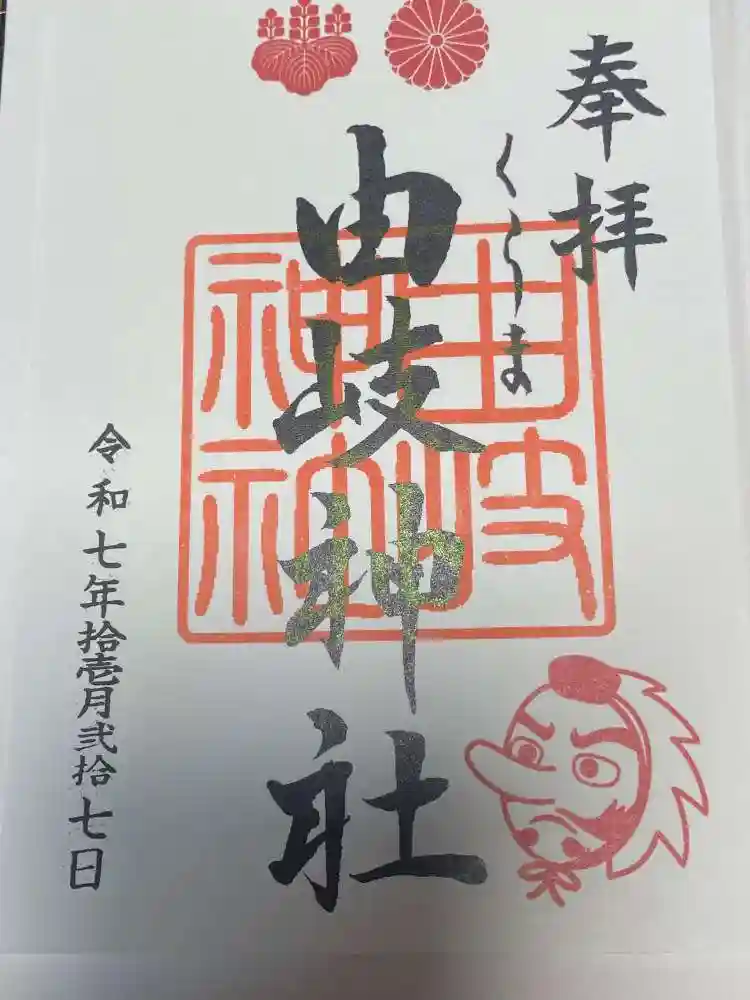 奉拝
くらま
由岐神社
令和七年拾壱月弐拾七日